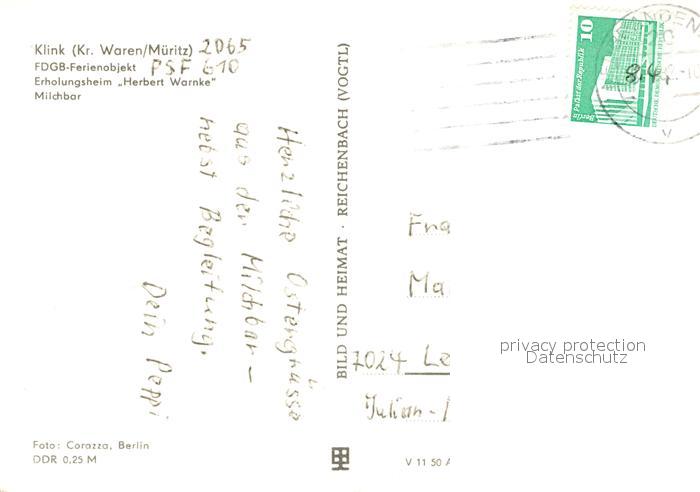 Klink (Kr. Waren/Müritz) 2065
FDGB-Ferienobjekt PSF 610
Erholungsheim „Herbert Warnke"
Milchbar
Herzliche Ostergrüsse
aus der Milchbar –
nebst Begleitung.
Dein Peppi
BILD UND HEIMAT · REICHENBACH (VOGTL)
10
Palast der Republik
Berlin
Fra
Ma
7024 Le
Julian-
privacy protection
Datenschutz
Foto: Corazza, Berlin
DDR 0,25 M
V 11 50 A